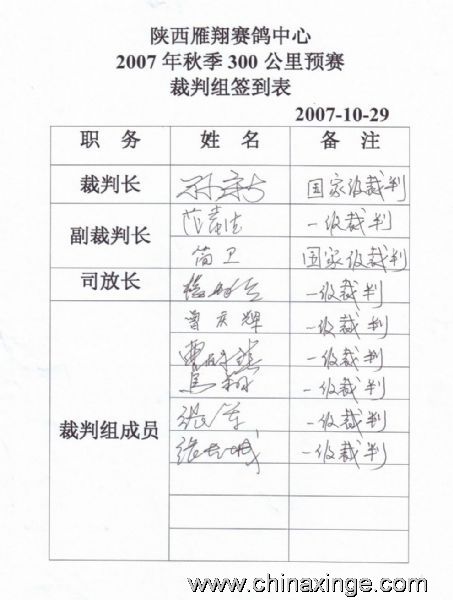 陕西雁翔赛鸽中心
2007年秋季300公里预赛
裁判组签到表
2007-10-29
职 务 姓 名 备 注
裁判长 国家级裁判
副裁判长 一级裁判
简卫 国家级裁判
司放长 一级裁判
裁判组成员 曾庆辉 一级裁判
一级裁判
一级裁判
张军 一级裁判
一级裁判
www.chinaxinge.com